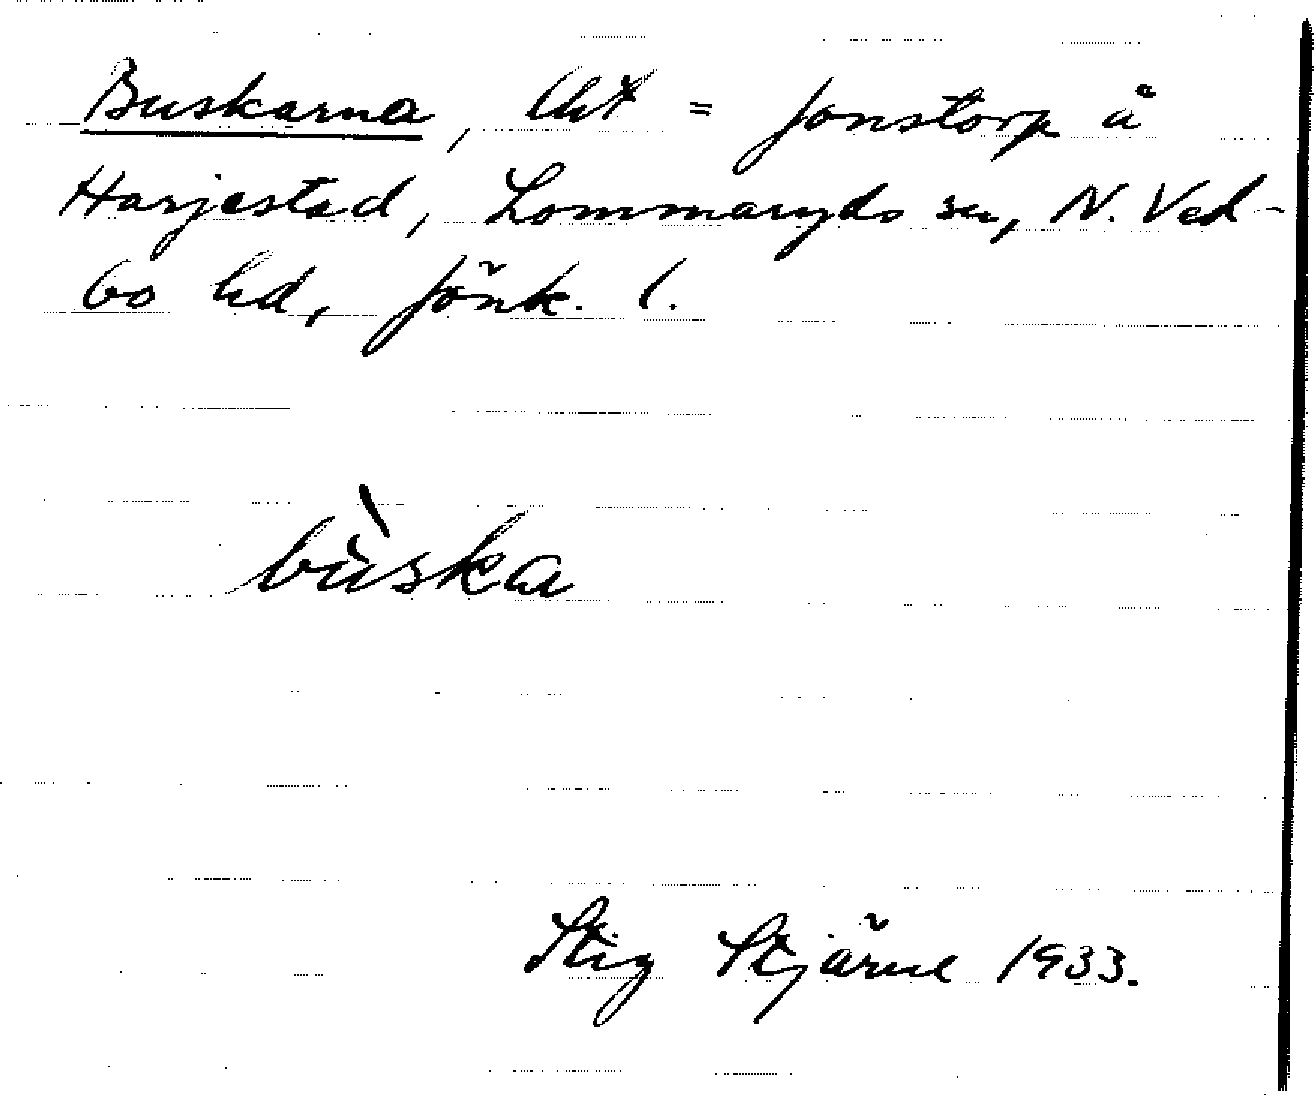 Buskarna, lht = Jonstorp å
Harjestad, Lommaryds sn, N. Ved-
bo hd, Jönk. l.
bùska
Stig Stjärne 1933.